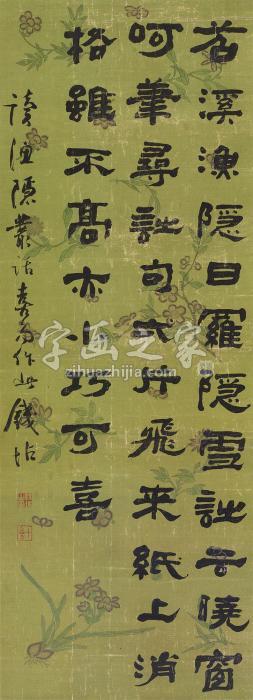 苕溪漁隱曰羅隱雪詩云曉窗
呵筆尋詩句弌片飛來紙上消
格雖不高亦小巧可喜
讀漁隱叢話喜而作此錢坫
字画之家
www.zihuazhijia.com